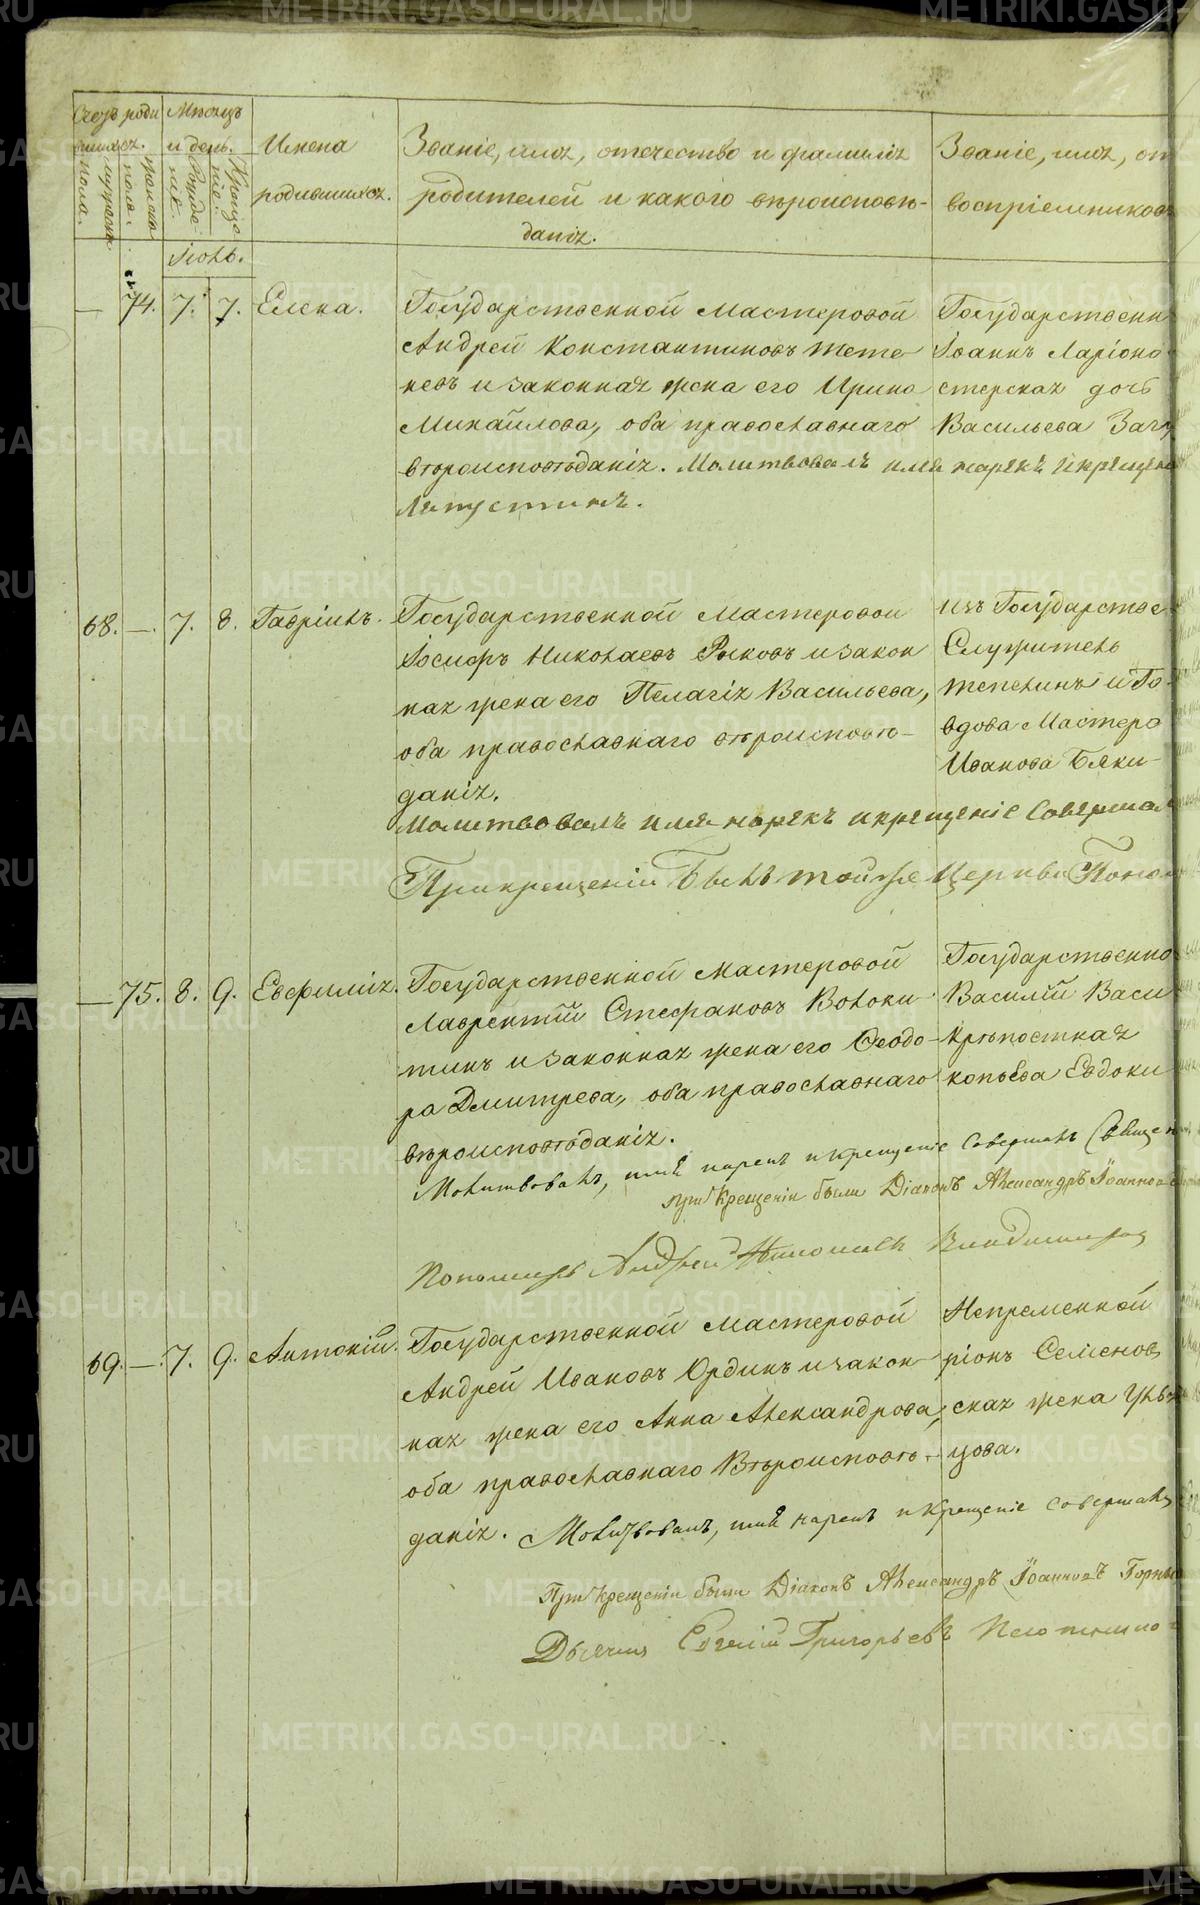 Счетъ роди
вшихся.
Мѣсяцъ
и день.
Имена
родившихся.
Званіе, имя, отечество и фамилія
родителей и какого вѣроисповѣ-
данія.
Званіе, имя, от
воспріемниковъ
Іюнь.
— 74. 7. 7. Елена.
Государственной мастеровой
Андрей Константиновъ
невъ и законная жена его Ирина
Михайлова, оба православнаго
вѣроисповѣданія. Молитвовалъ имя нарекъ и крещен
Государственн
Іоаннъ Ларіоно
стерская дочь
Васильева
68. — 7. 8. Гавріилъ.
Государственной мастеровой
Іосифъ Николаевъ Рыковъ и закон
ная жена его Пелагія Васильева,
оба православнаго вѣроисповѣ-
данія.
Молитвовалъ имя нарекъ и крещеніе совершал
При крещеніи былъ той же Церкви Поно
изъ Государстве
Служитель
вдова Мастеро
Иванова
— 75. 8. 9. Евфимія.
Государственной мастеровой
Лаврентій Стефановъ Волоки-
тинъ и законная жена его Ѳеодо-
ра Дмитрева, оба православнаго
вѣроисповѣданія.
Молитвовалъ, имя нарекъ и крещеніе совершалъ Священ
При крещеніи были Діаконъ Александръ Іоанновъ
Пономарь Андрей
Государственно
Василій Васи
Крѣпостная
копьева Евдоки
69. — 7. 9. Антоній.
Государственной мастеровой
Андрей Ивановъ Ординъ и закон-
ная жена его Анна Александрова,
оба православнаго Вѣроисповѣ-
данія. Молитвовалъ, имя нарекъ и крещеніе совершалъ
При крещеніи были Діаконъ Александръ Іоанновъ
Дьячекъ Евгеній Григорьевъ
Непременной
ріонъ Семеновъ
ская жена
цова.
METRIKI.GASO-URAL.RU